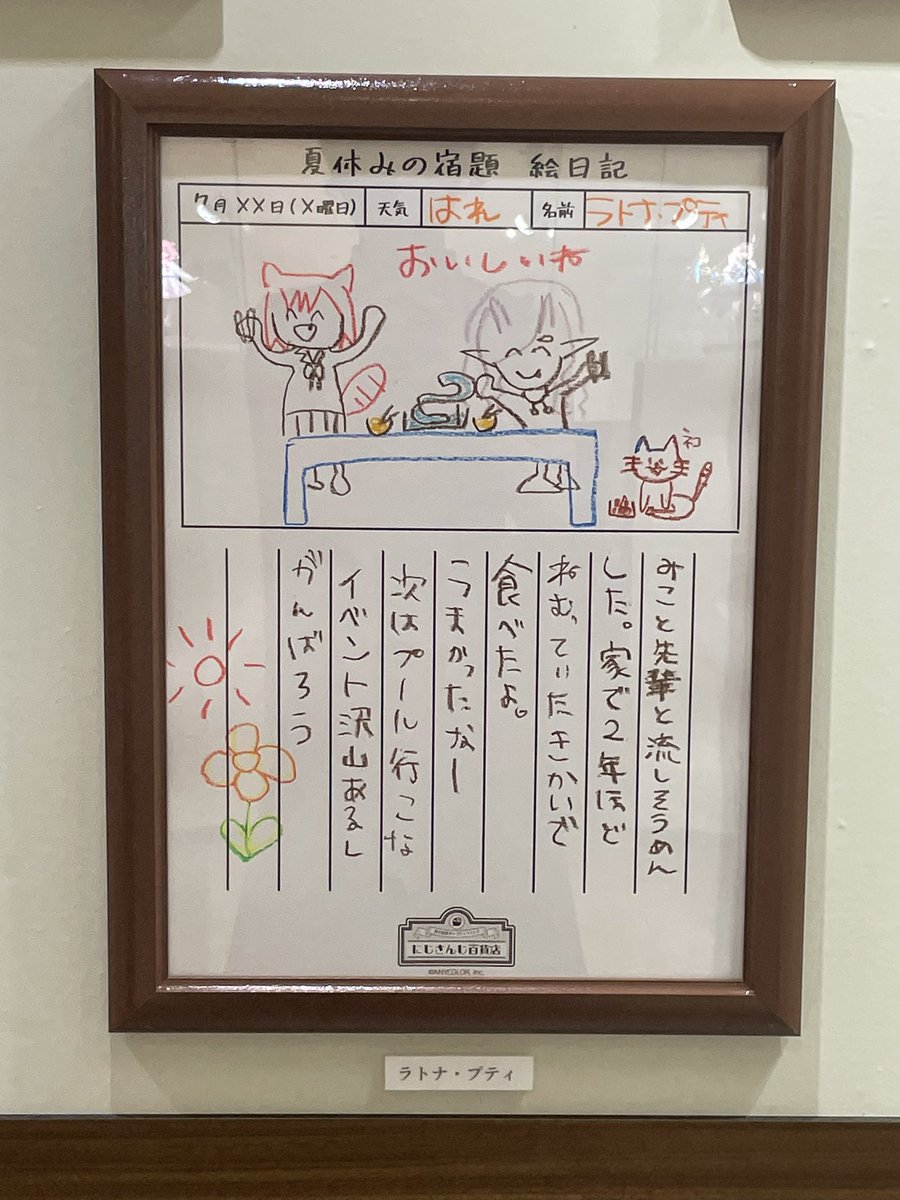 夏休みの宿題 絵日記
7月××日(×曜日) 天気 はれ 名前 ラトナ・プティ
おいしいね
ネコ
みこと先輩と流しそうめん
した。家で2年ほど
ねむっていたきかいで
食べたよ。
うまかったなー
次はプール行こな
イベント沢山あるし
がんばろう
にじさんじ百貨店
©ANYCOLOR, Inc.
ラトナ・プティ